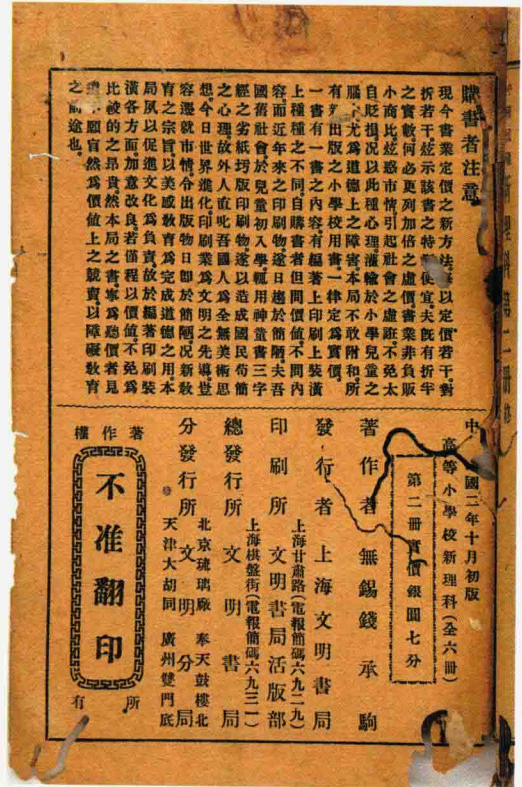 購書者注意
現今書業定價之新方法。每以定價若干。對
折若干。炫示該書之特便宜。夫旣有折半
之實數。何必更列加倍之虛價。書業非負販
小商比。炫惑市情。引起社會之虛誑。不免太
自貶損。况以此種心理。灌輸於小學兒童之
腦尤爲道德上之障害。本局不敢附和。所
有出版之小學校用書。一律定爲實價。
一書有一書之內容。有編著上印刷上裝潢
上種種之不同。自購書者但問價值。不問內
容。而近年來之印刷物。遂日趨於簡陋。夫吾
國舊社會。於兒童初入學。輒用神童書三字
經之劣紙圬版印刷物。遂以造成國民苟簡
之心理。故外人直叱吾國人爲全無美術思
想。今日世界進化。印刷業爲文明之先導。豈
容遷就市情。令出版物日卽於簡陋。况新敎
育之宗旨。以美感敎育爲完成道德之用。本
局夙以促進文化爲負責。故於編著印刷裝
潢各方面。加意改良。若僅程以價值。不免爲
比較的之昂貴。然本局之書。寧爲聽價者見
不願盲然爲價值上之競賣。以障礙敎育
之前途也。
中國二年十月初版
高等小學校新理科(全六冊)
第二冊實價銀圓七分
著作者 無錫錢承駒
發行者 上海文明書局
上海甘肅路(電報簡碼六九二九)
印刷所 文明書局活版部
上海棋盤街(電報簡碼六九三一)
總發行所 文明書局
北京琉璃廠 奉天鼓樓北
分發行所 文明分局
天津大胡同 廣州雙門底
著作權
不准翻印
所有